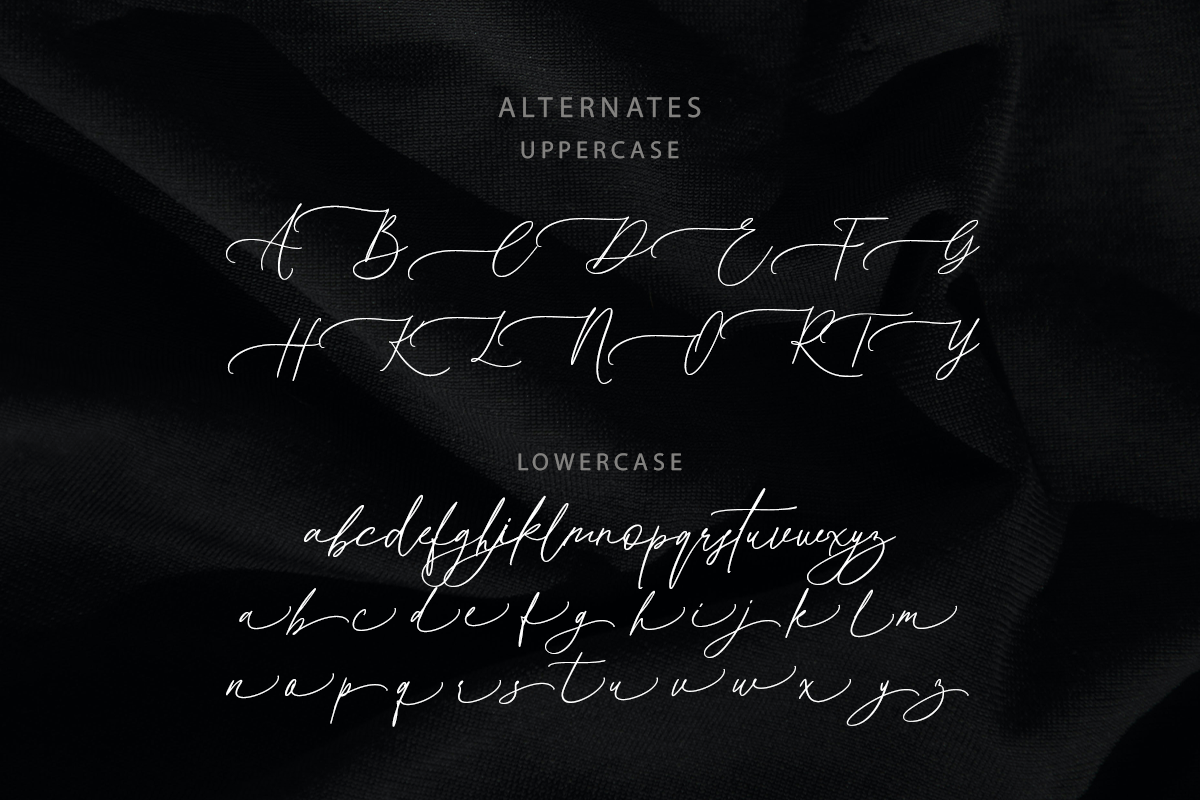 ALTERNATES
UPPERCASE
A B C D E F G
H K L N O R T Y
LOWERCASE
abcdefghijklmnopqrstuvwxyz
a b c d e f g h i j k l m
n o p q r s t u v w x y z